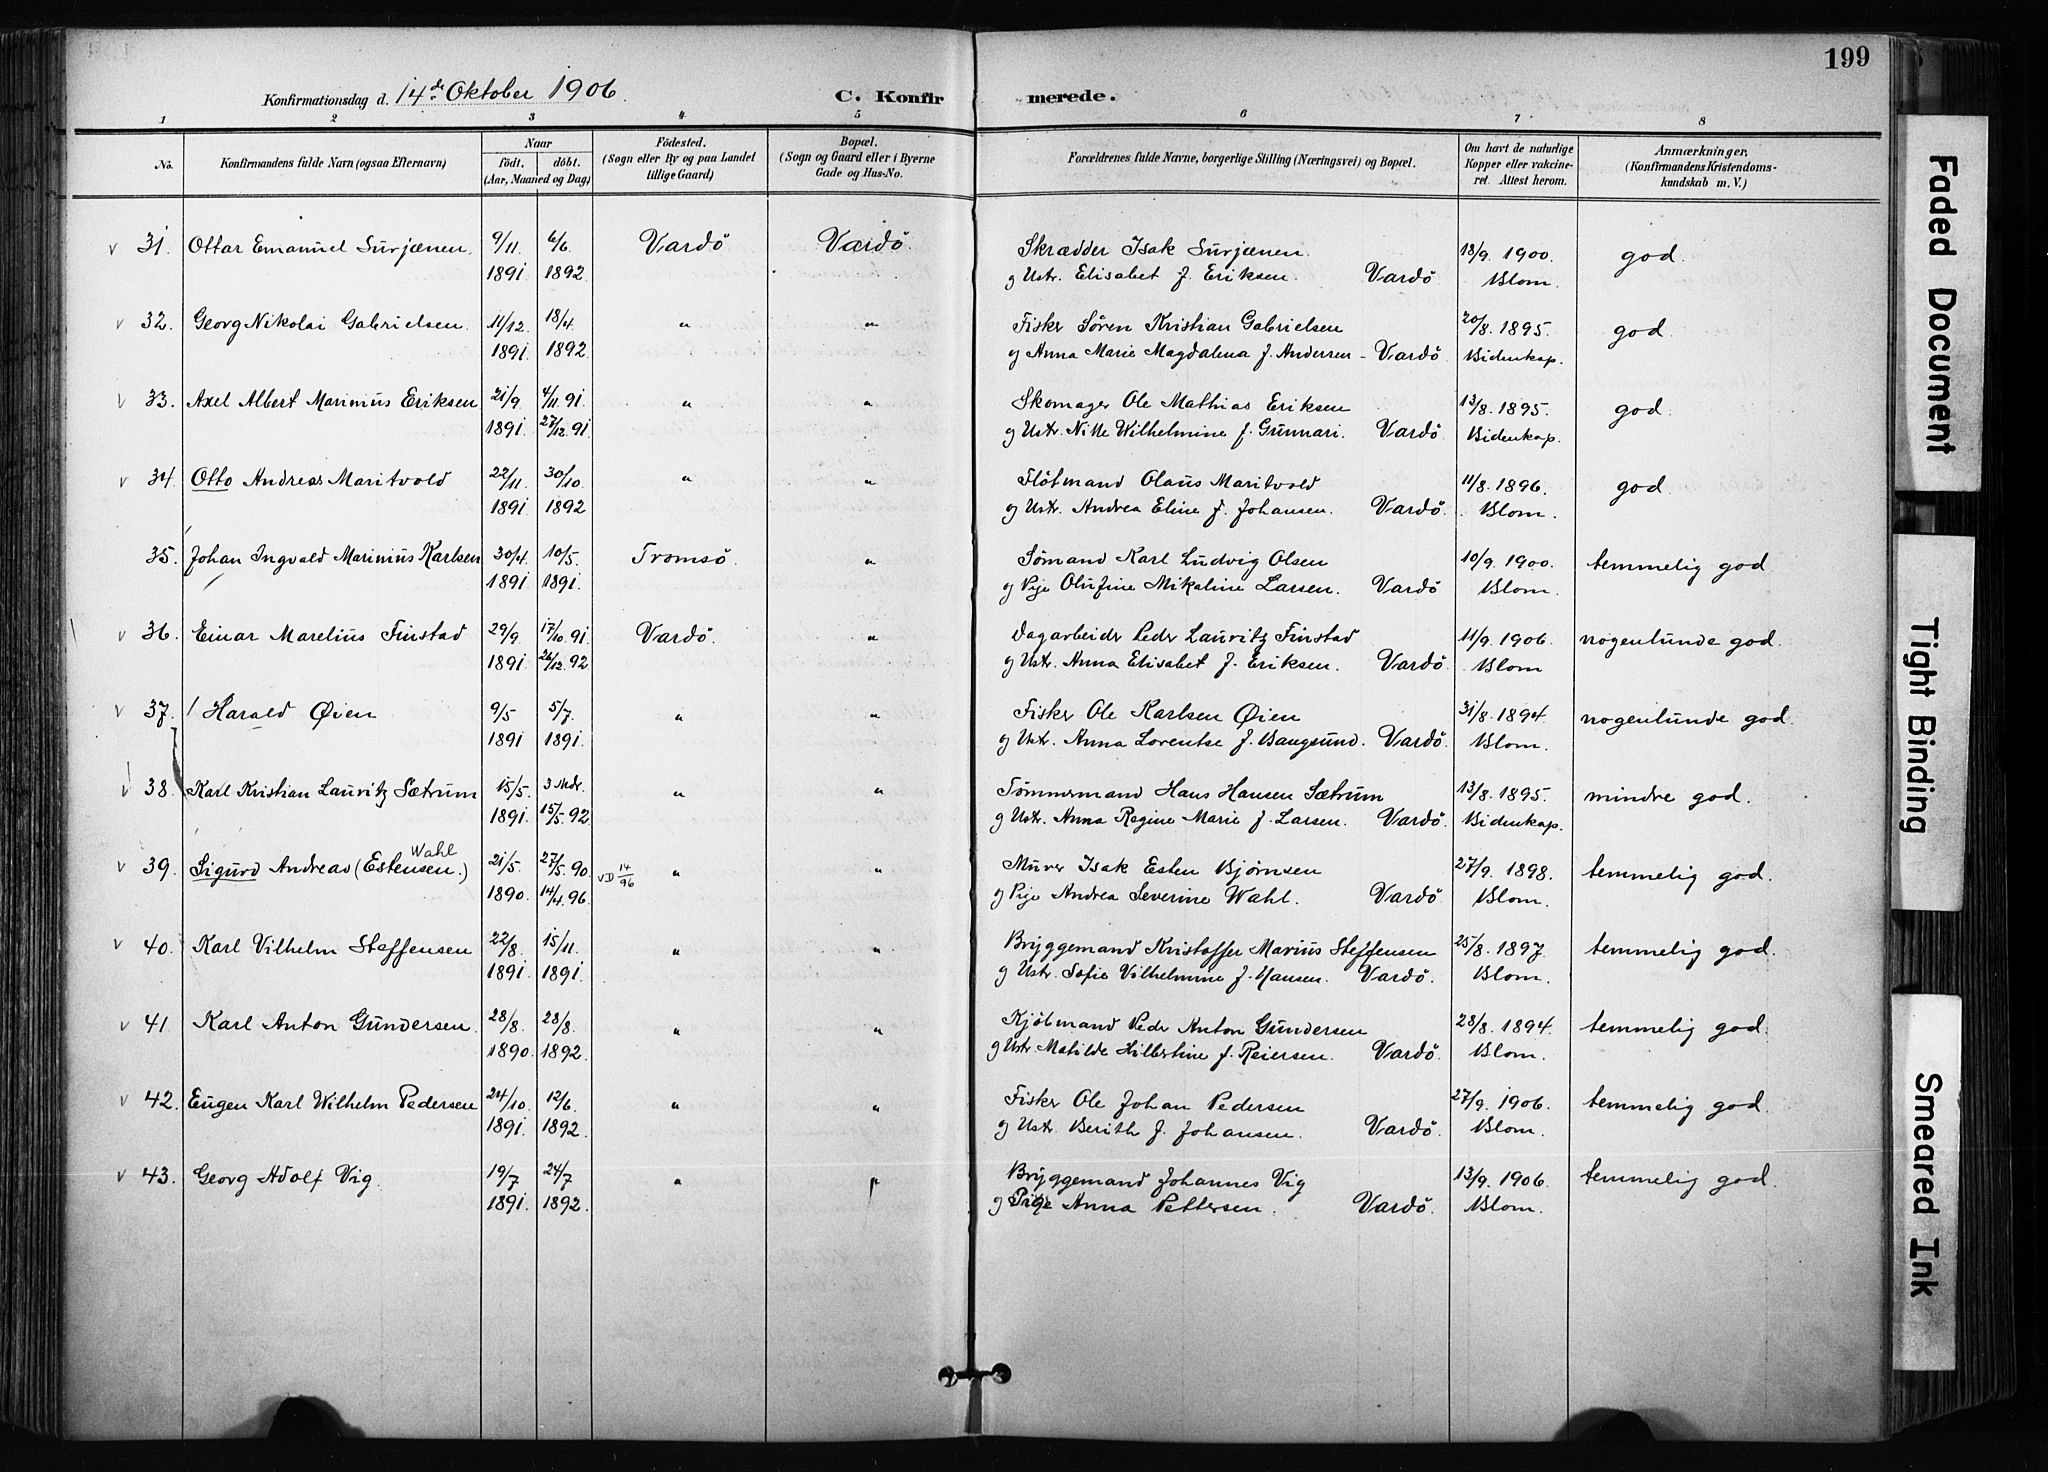 199
Konfirmationsdag d. 14de Oktober 1906.
C. Konfirmerede.
1 2 3 4 5 6 7 8
No. Konfirmandens fulde Navn (ogsaa Efternavn) Naar födt. döbt. (Aar, Maaned og Dag) Födested. (Sogn eller By og paa Landet tillige Gaard) Bopæl. (Sogn og Gaard eller i Byerne Gade og Hus-No. Forældrenes fulde Navne, borgerlige Stilling (Næringsvei) og Bopæl. Om havt de naturlige Kopper eller vakcineret. Attest herom. Anmærkninger, (Konfirmandens Kristendomskundskab m. V.)
v 31. Ottar Emanuel Surjænen. 9/11. 6/6. Vardö Vardö. Skrædder Isak Surjænen. 18/9. 1900. god.
1891. 1892. g Ustr. Elisabet f. Eriksen. Vardö Blom.
v 32. Georg Nikolai Gabrielsen. 11/12. 18/4. " " Fisker Sören Kristian Gabrielsen 20/8. 1895. god.
1891. 1892. g Anna Marie Magdalena f. Andersen - Vardö. Bidenkap.
v 33. Axel Albert Marinius Eriksen 21/9. 4/11.91. " " Skomager Ole Mathias Eriksen 13/8. 1895. god.
1891. 27/12.91. g Ustr. Nille Wilhelmine f. Gunnari. Vardö. Bidenkap.
v 34. Otto Andreas Maritvold 22/11. 30/10. " " Flötmand Olaus Maritvold 11/8. 1896. god.
1891. 1892 g Ustr. Andrea Eline f. Johansen. Vardö. Blom.
35. Johan Ingvald Marinius Karlsen 30/4. 10/5. Tromsö. " Sömand Karl Ludvig Olsen 10/9. 1900. temmelig god.
1891. 1891. g Pige Olufine Mikaline Larsen. Vardö Blom.
v 36. Einar Marelius Finstad 29/9. 17/10.91. Vardö. " Dagarbeider Peder Lauritz Finstad 11/9. 1906. nogenlunde god.
1891. 26/12.92. g Ustr. Anna Elisabet f. Eriksen. Vardö. Blom
v 37. Harald Øien 9/5 5/7. " " Fisker Ole Karlsen Øien 31/8. 1894. nogenlunde god.
1891 1891. g Ustr. Anna Lorentse f. Bangsund. Vardö. Blom.
v 38. Karl Kristian Lauritz Sætrum 15/5. 3 " " Tömmermand Hans Hansen Sætrum 13/8. 1895. mindre god.
1891. 15/5.92. g Ustr. Anna Regine Marie f. Larsen. Vardö. Bidenkap.
Wahl
v 39. Sigurd Andreas (Estensen.) 21/5. 27/5.90. VD 14/96 " " Murer Isak Esten Bjørnsen 27/9. 1898. temmelig god.
1890. 14/4.96. g Pige Andrea Severine Wahl. Vardö Blom.
v 40. Karl Vilhelm Steffensen 22/8. 15/11. " " Bryggemand Kristoffer Marius Steffensen 25/8. 1897. temmelig god.
1891. 1891. g Ustr. Sofie Vilhelmine f. Hansen. Vardö. Blom.
v 41. Karl Anton Gundersen. 28/8. 28/8. " " Kjöbmand Peder Anton Gundersen 28/8. 1894. temmelig god.
1890. 1892. g Ustr. Matilde Hilbertine f. Reiersen. Vardö. Blom.
v 42. Eugen Karl Wilhelm Pedersen 24/10. 12/6. " " Fisker Ole Johan Pedersen 27/9. 1906. temmelig god.
1891. 1892. g Ustr. Berith f. Johansen. Vardö. Blom.
v 43. Georg Adolf Vig. 19/7 24/7 " " Bryggemand Johannes Vig 13/9. 1906. temmelig god.
1891. 1892. g Pige Anna Pettersen. Vardö. Blom.
Faded Document
Tight Binding
Smeared Ink